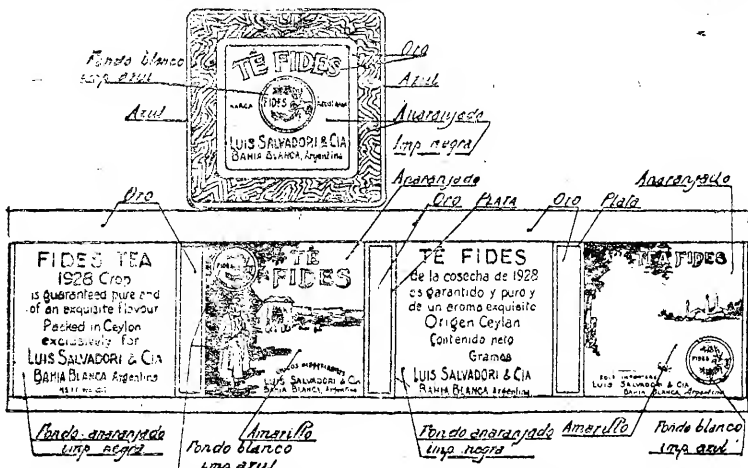 Fondo blanco
imp azul
Azul
TÊ FIDES
MARCA
FIDES
LUIS SALVADORI & CIA
BAHIA BLANCA, Argentina
Oro
Azul
Anaranjado
Imp negra
Oro
Anaranjado
Oro
PLATA
Oro
Plata
Anaranjado
FIDES TEA
1928 Crop
is guaranteed pure and
of an exquisite flavour
Packed in Ceylon
exclusively for
LUIS SALVADORI & CIA
BAHIA BLANCA Argentina
FIDES
TÉ
FIDES
LUIS SALVADORI & CIA
BAHIA BLANCA, Argentina
TÉ FIDES
de la cosecha de 1928
es garantido y puro y
de un aroma exquisito
Origen Ceylan
Contenido neto
Gramos
LUIS SALVADORI & CIA
BAHIA BLANCA Argentina
TEA FIDES
FIDES
LUIS SALVADORI & CIA
BAHIA BLANCA, Argentina
Fondo anaranjado
imp negra
Fondo blanco
imp azul
Amarillo
Fondo anaranjado
imp negra
Amarillo
Fondo blanco
imp azul